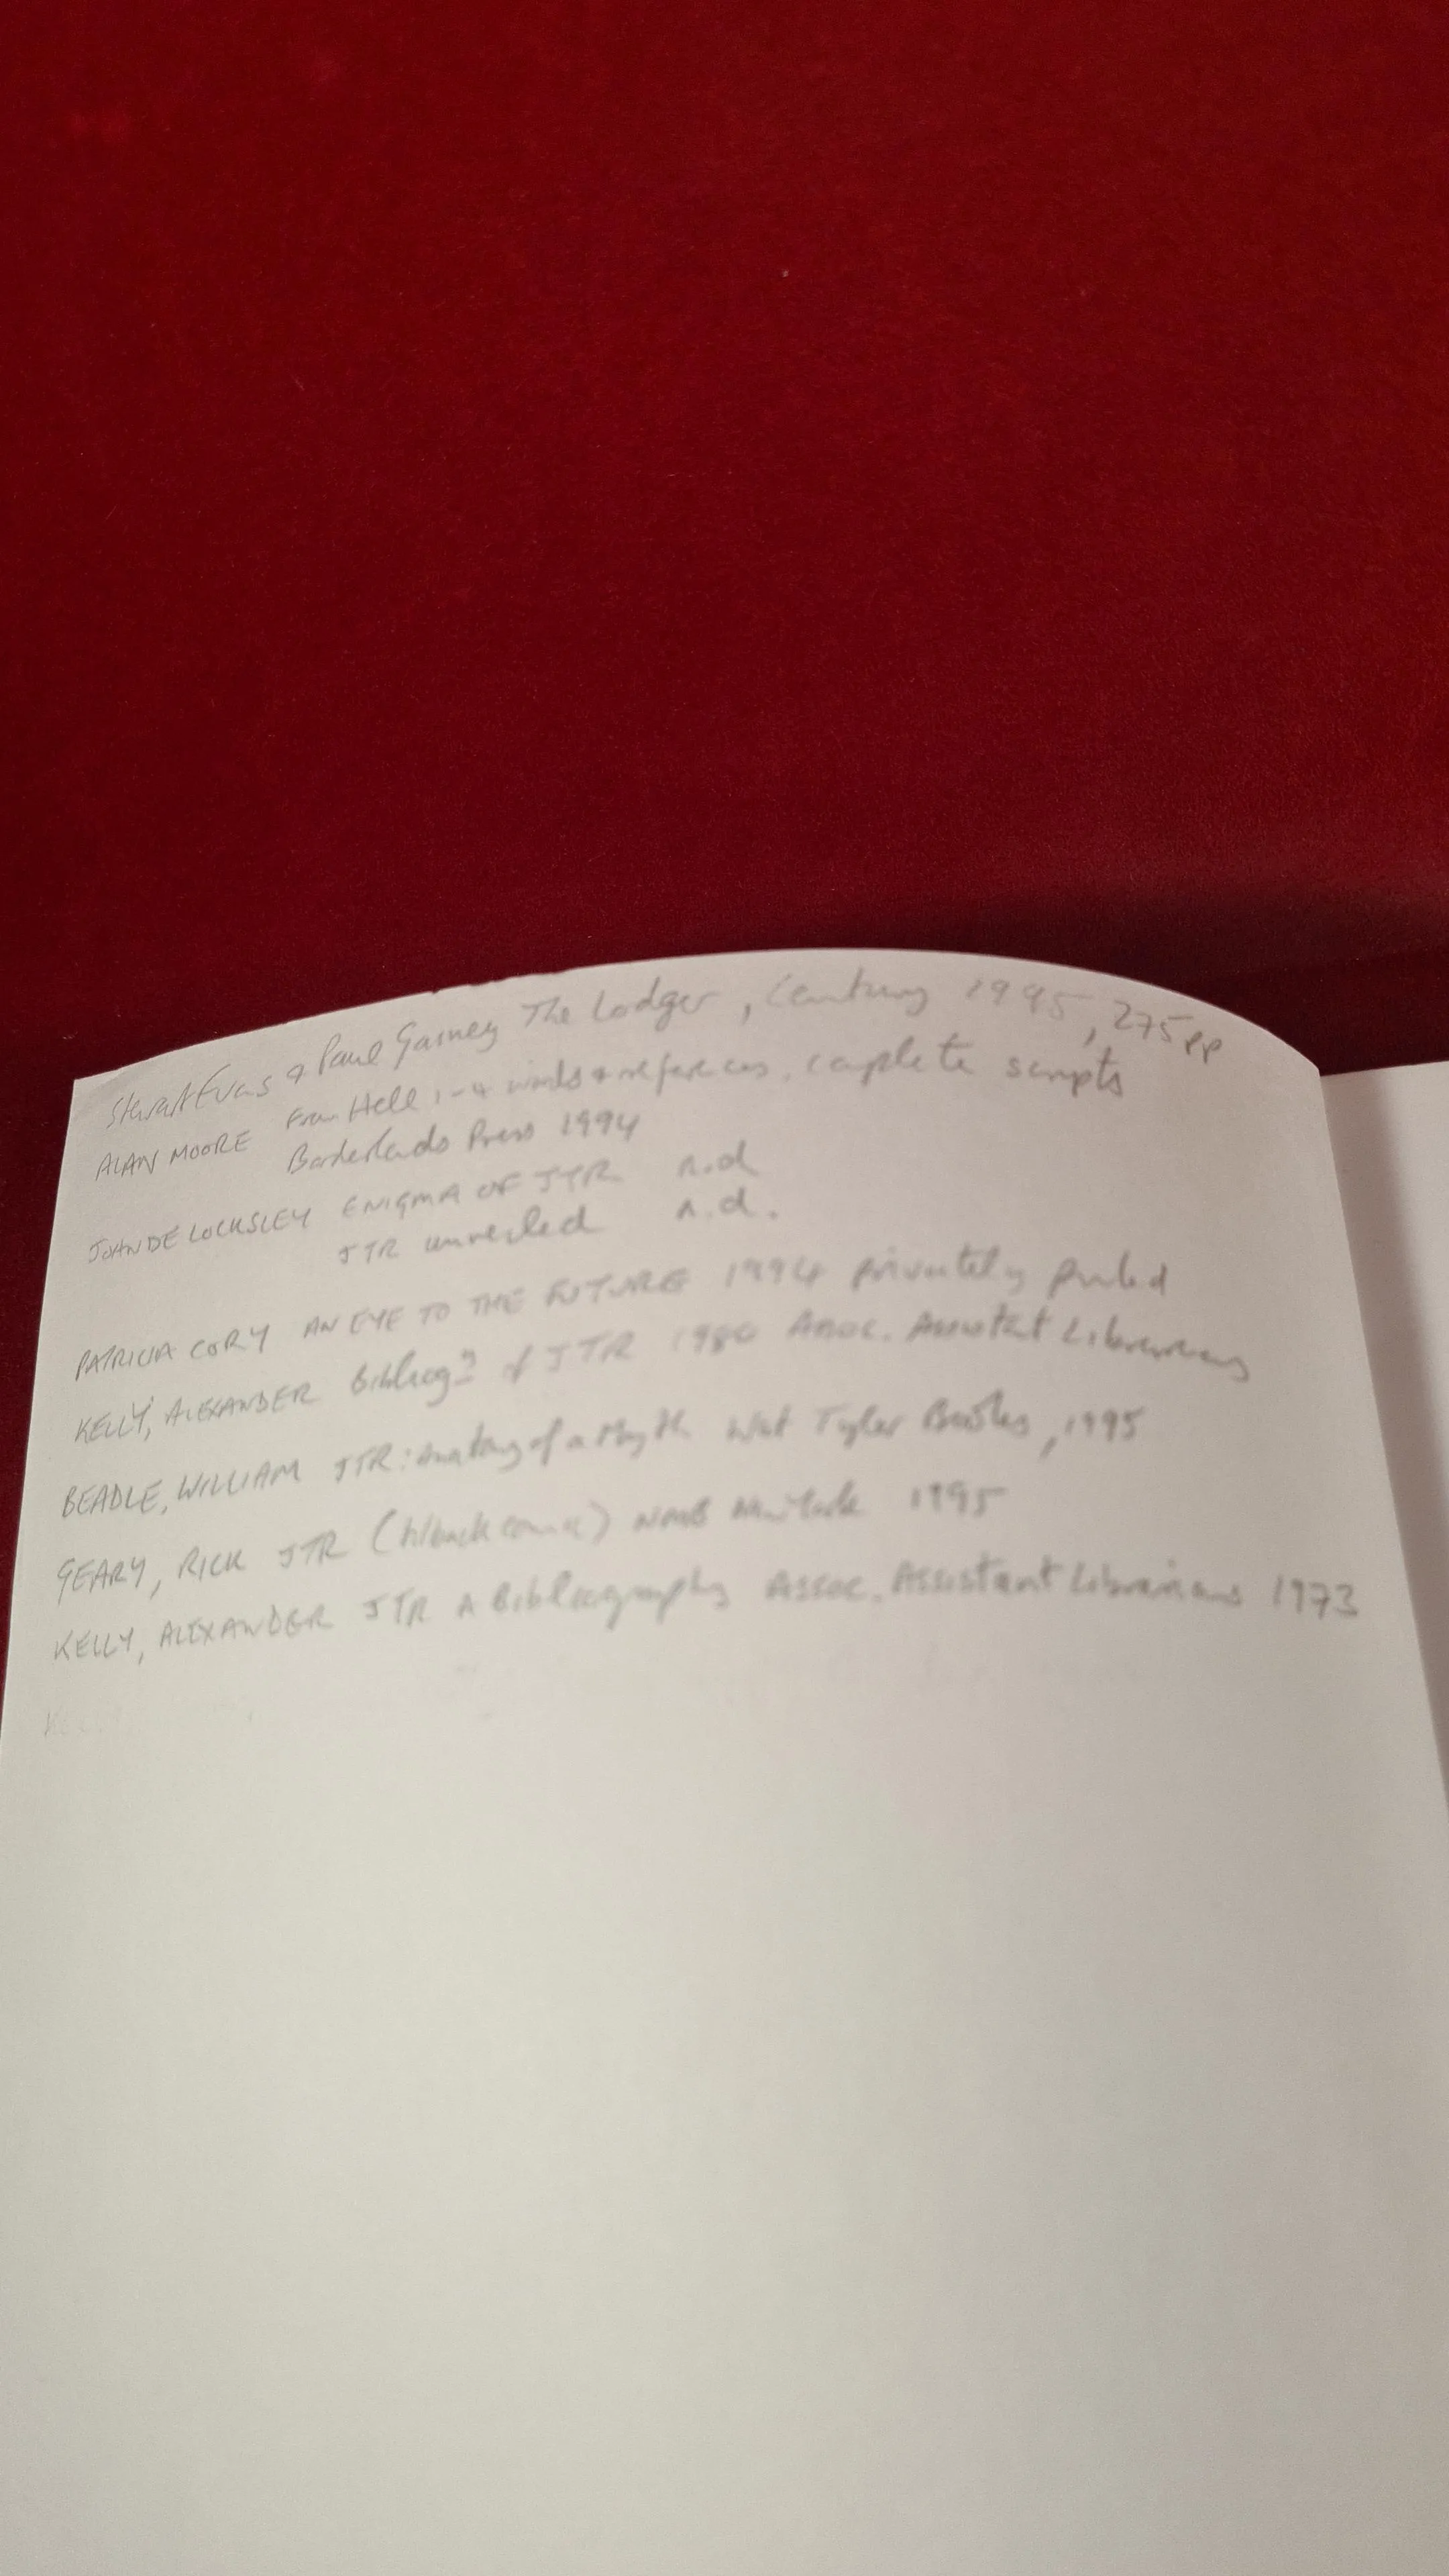 Stewart Evans & Paul Gainey The Lodger, Century 1995, 275pp
ALAN MOORE From Hell 1-4 words & references, complete scripts
Borderlands Press 1994
JOHN DE LOCKSLEY ENIGMA OF JTR n.d
JTR unveiled n.d.
PATRICIA CORY AN EYE TO THE FUTURE 1994 privately printed
KELLY, ALEXANDER Bibliog of JTR Assoc. Assistant Librarians
BEADLE, WILLIAM JTR: Anatomy of a Myth Wat Tyler Books, 1995
GEARY, RICK JTR (h/back comic) NMB New York 1995
KELLY, ALEXANDER JTR A Bibliography Assoc. Assistant Librarians 1973